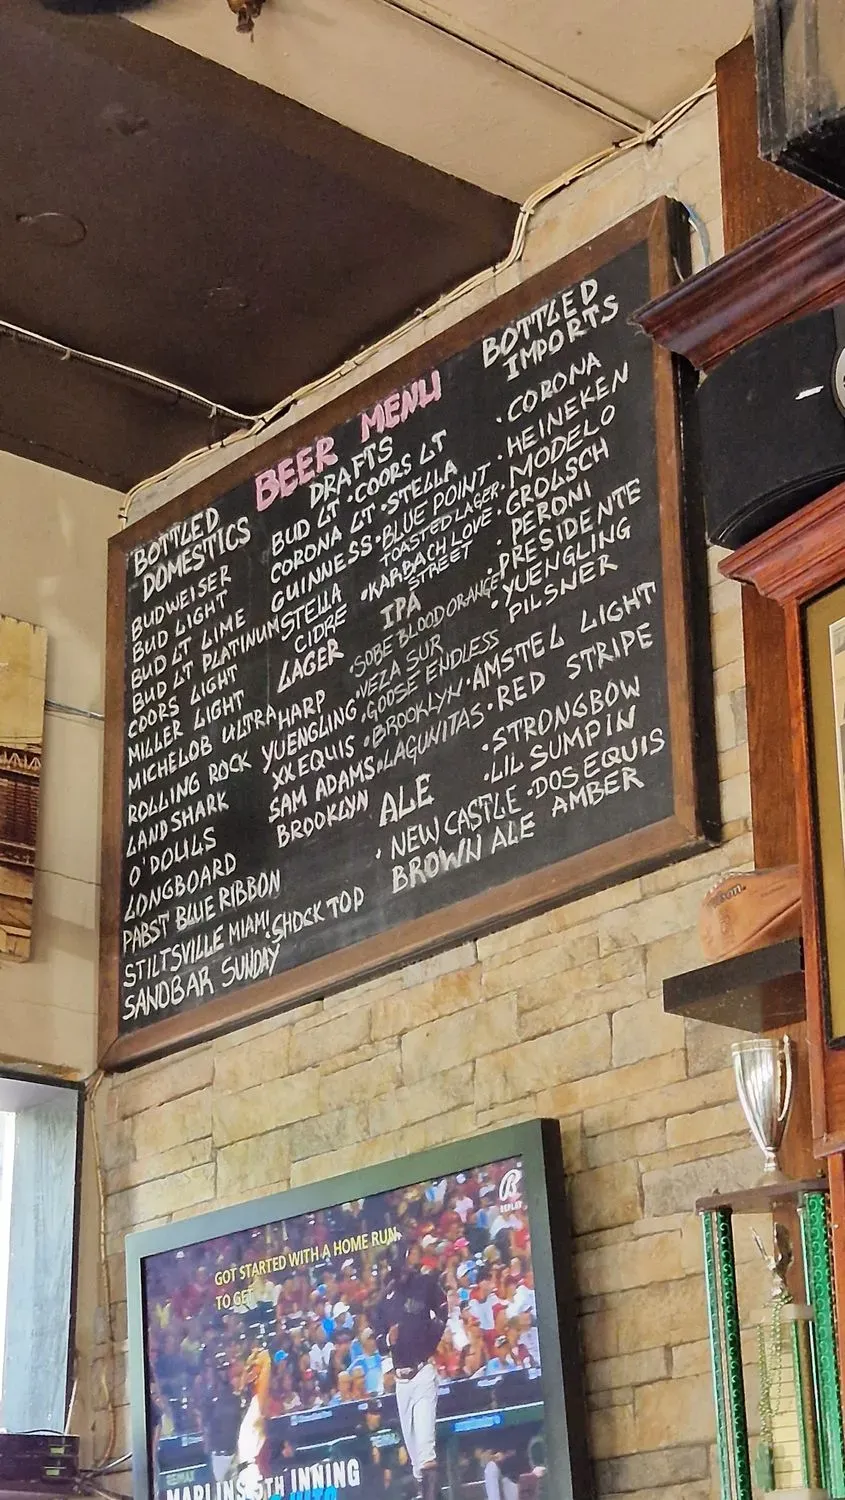 BEER MENU
BOTTLED
DOMESTICS
BUDWEISER
BUD LIGHT
BUD LT LIME
BUD LT PLATINUM
COORS LIGHT
MILLER LIGHT
MICHELOB ULTRA
ROLLING ROCK
LANDSHARK
O'DOULS
LONGBOARD
PABST BLUE RIBBON
STILTSVILLE MIAMI
SANDBAR SUNDAY
•SHOCK TOP
DRAFTS
BUD LT •COORS LT
CORONA LT •STELLA
GUINNESS •BLUE POINT
TOASTED LAGER
•KARBACH LOVE
STREET
STELLA
CIDRE
LAGER
HARP
YUENGLING
XX EQUIS
SAM ADAMS
BROOKLYN
IPA
•SOBE BLOOD ORANGE
•VEZA SUR
•GOOSE ENDLESS
•BROOKLYN
•LAGUNITAS
ALE
•NEW CASTLE
BROWN ALE
BOTTLED
IMPORTS
•CORONA
•HEINEKEN
•MODELO
•GROLSCH
•PERONI
•PRESIDENTE
•YUENGLING
PILSNER
•AMSTEL LIGHT
•RED STRIPE
•STRONGBOW
•LIL SUMPIN
•DOS EQUIS
AMBER
Wilson
REPLAY
GOT STARTED WITH A HOME RUN
TO GET
MARLINS 5TH INNING